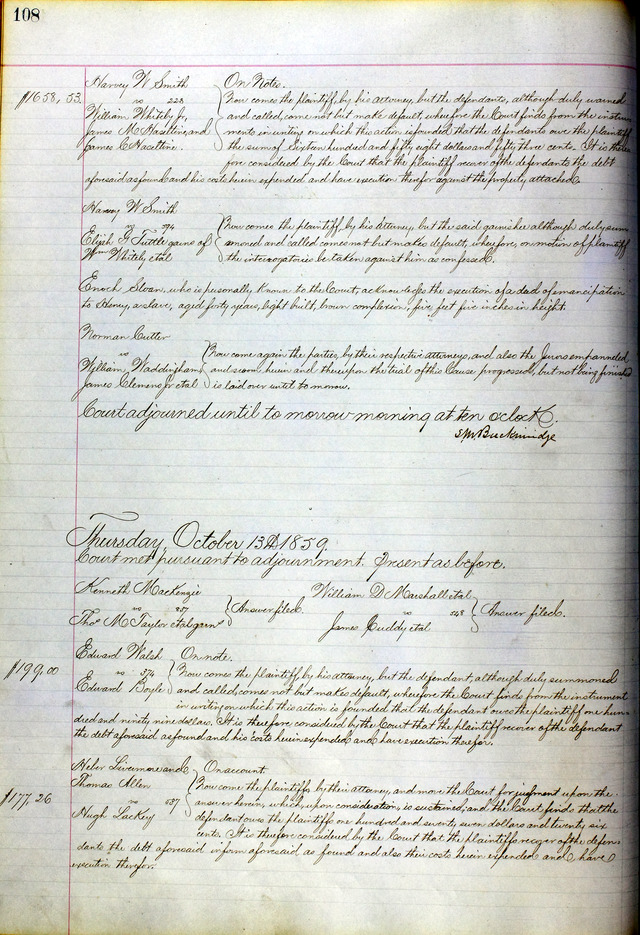 108
Harvey W Smith On Note.
$1658,53. vs 228 Now comes the plaintiff, by his attorney, but the defendants, although duly warned
William Whiteby Jr, and called, come not but make default, wherefore the Court finds from the instru
James M Haseltine, and ments in writing on which this action is founded, that the defendants owe the plaintiff
James C Haseltine. the sum of Sixteen hundred and fifty eight dollars and fifty three cents. It is there
fore considered by the Court that the plaintiff recover of the defendants the debt
aforesaid as found and his costs herein expended and have execution therefor against the property attached.
Harvey W Smith
vs Now comes the plaintiff by his Attorney, but the said garnishee although duly sum
Elijah G Tuttle garn of moned and called comes not but makes default, wherefore, on motion of plaintiff
Wm Whiteby, etal the interrogatories be taken against him as confessed.
Enoch Sloan, who is personally known to the Court, acknowledges the execution of a deed of emancipation
to Henry, a slave, aged forty years, light built, brown complexion, five feet five inches in height.
Norman Cutter
vs Now come again the parties, by their respective attorneys, and also the Jurors empanneled
William Waddingham and sworn herein and thereupon the trial of this Cause progressed, but not being finished
James Clemens Jr etal is laid over until to morrow.
Court adjourned until to morrow morning at ten o'clock.
S M Breckinridge
Thursday October 13th 1859.
Court met pursuant to adjournment. Present as before.
Kenneth Mackenzie William D Marshall etal
vs Answer filed. vs 548 Answer filed.
Thos M Taylor etal garns James Cuddy etal
Edward Walsh On note.
$199,00 vs 574 Now comes the plaintiff by his attorney, but the defendant, although duly summoned
Edward Boyle and called, comes not but makes default, wherefore the Court finds from the instrument
in writing on which this action is founded that the defendant owes the plaintiff one hun
dred and ninety nine dollars. It is therefore considered by the Court that the plaintiff recover of the defendant
the debt aforesaid as found and his costs herein expended and have execution therefor.
Heber Livermore and On account.
Thomas Allen Now come the plaintiffs, by their attorney, and move the Court for judgment upon the
$177,26 vs 587 answer herein, which, upon consideration, is sustained, and the Court finds that the
Hugh Lackey defendant owes the plaintiffs one hundred and seventy seven dollars and twenty six
cents. It is therefore considered by the Court that the plaintiffs recover of the defen
dant the debt aforesaid in form aforesaid as found and also their costs herein expended and have
execution therefor.